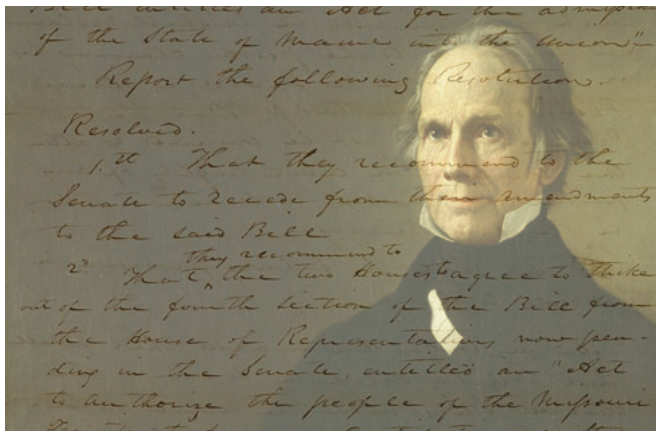 Bill entitled an Act for the admission
of the State of Maine into the Union"
Report the following Resolution.
Resolved.
1.st That they recommend to the
Senate to recede from their amendments
to the said Bill
they recommend to
2d That the two Houses agree to strike
out of the fourth section of the Bill from
the House of Representatives now pen-
ding in the Senate, entitled an "Act
to authorize the people of the Missouri